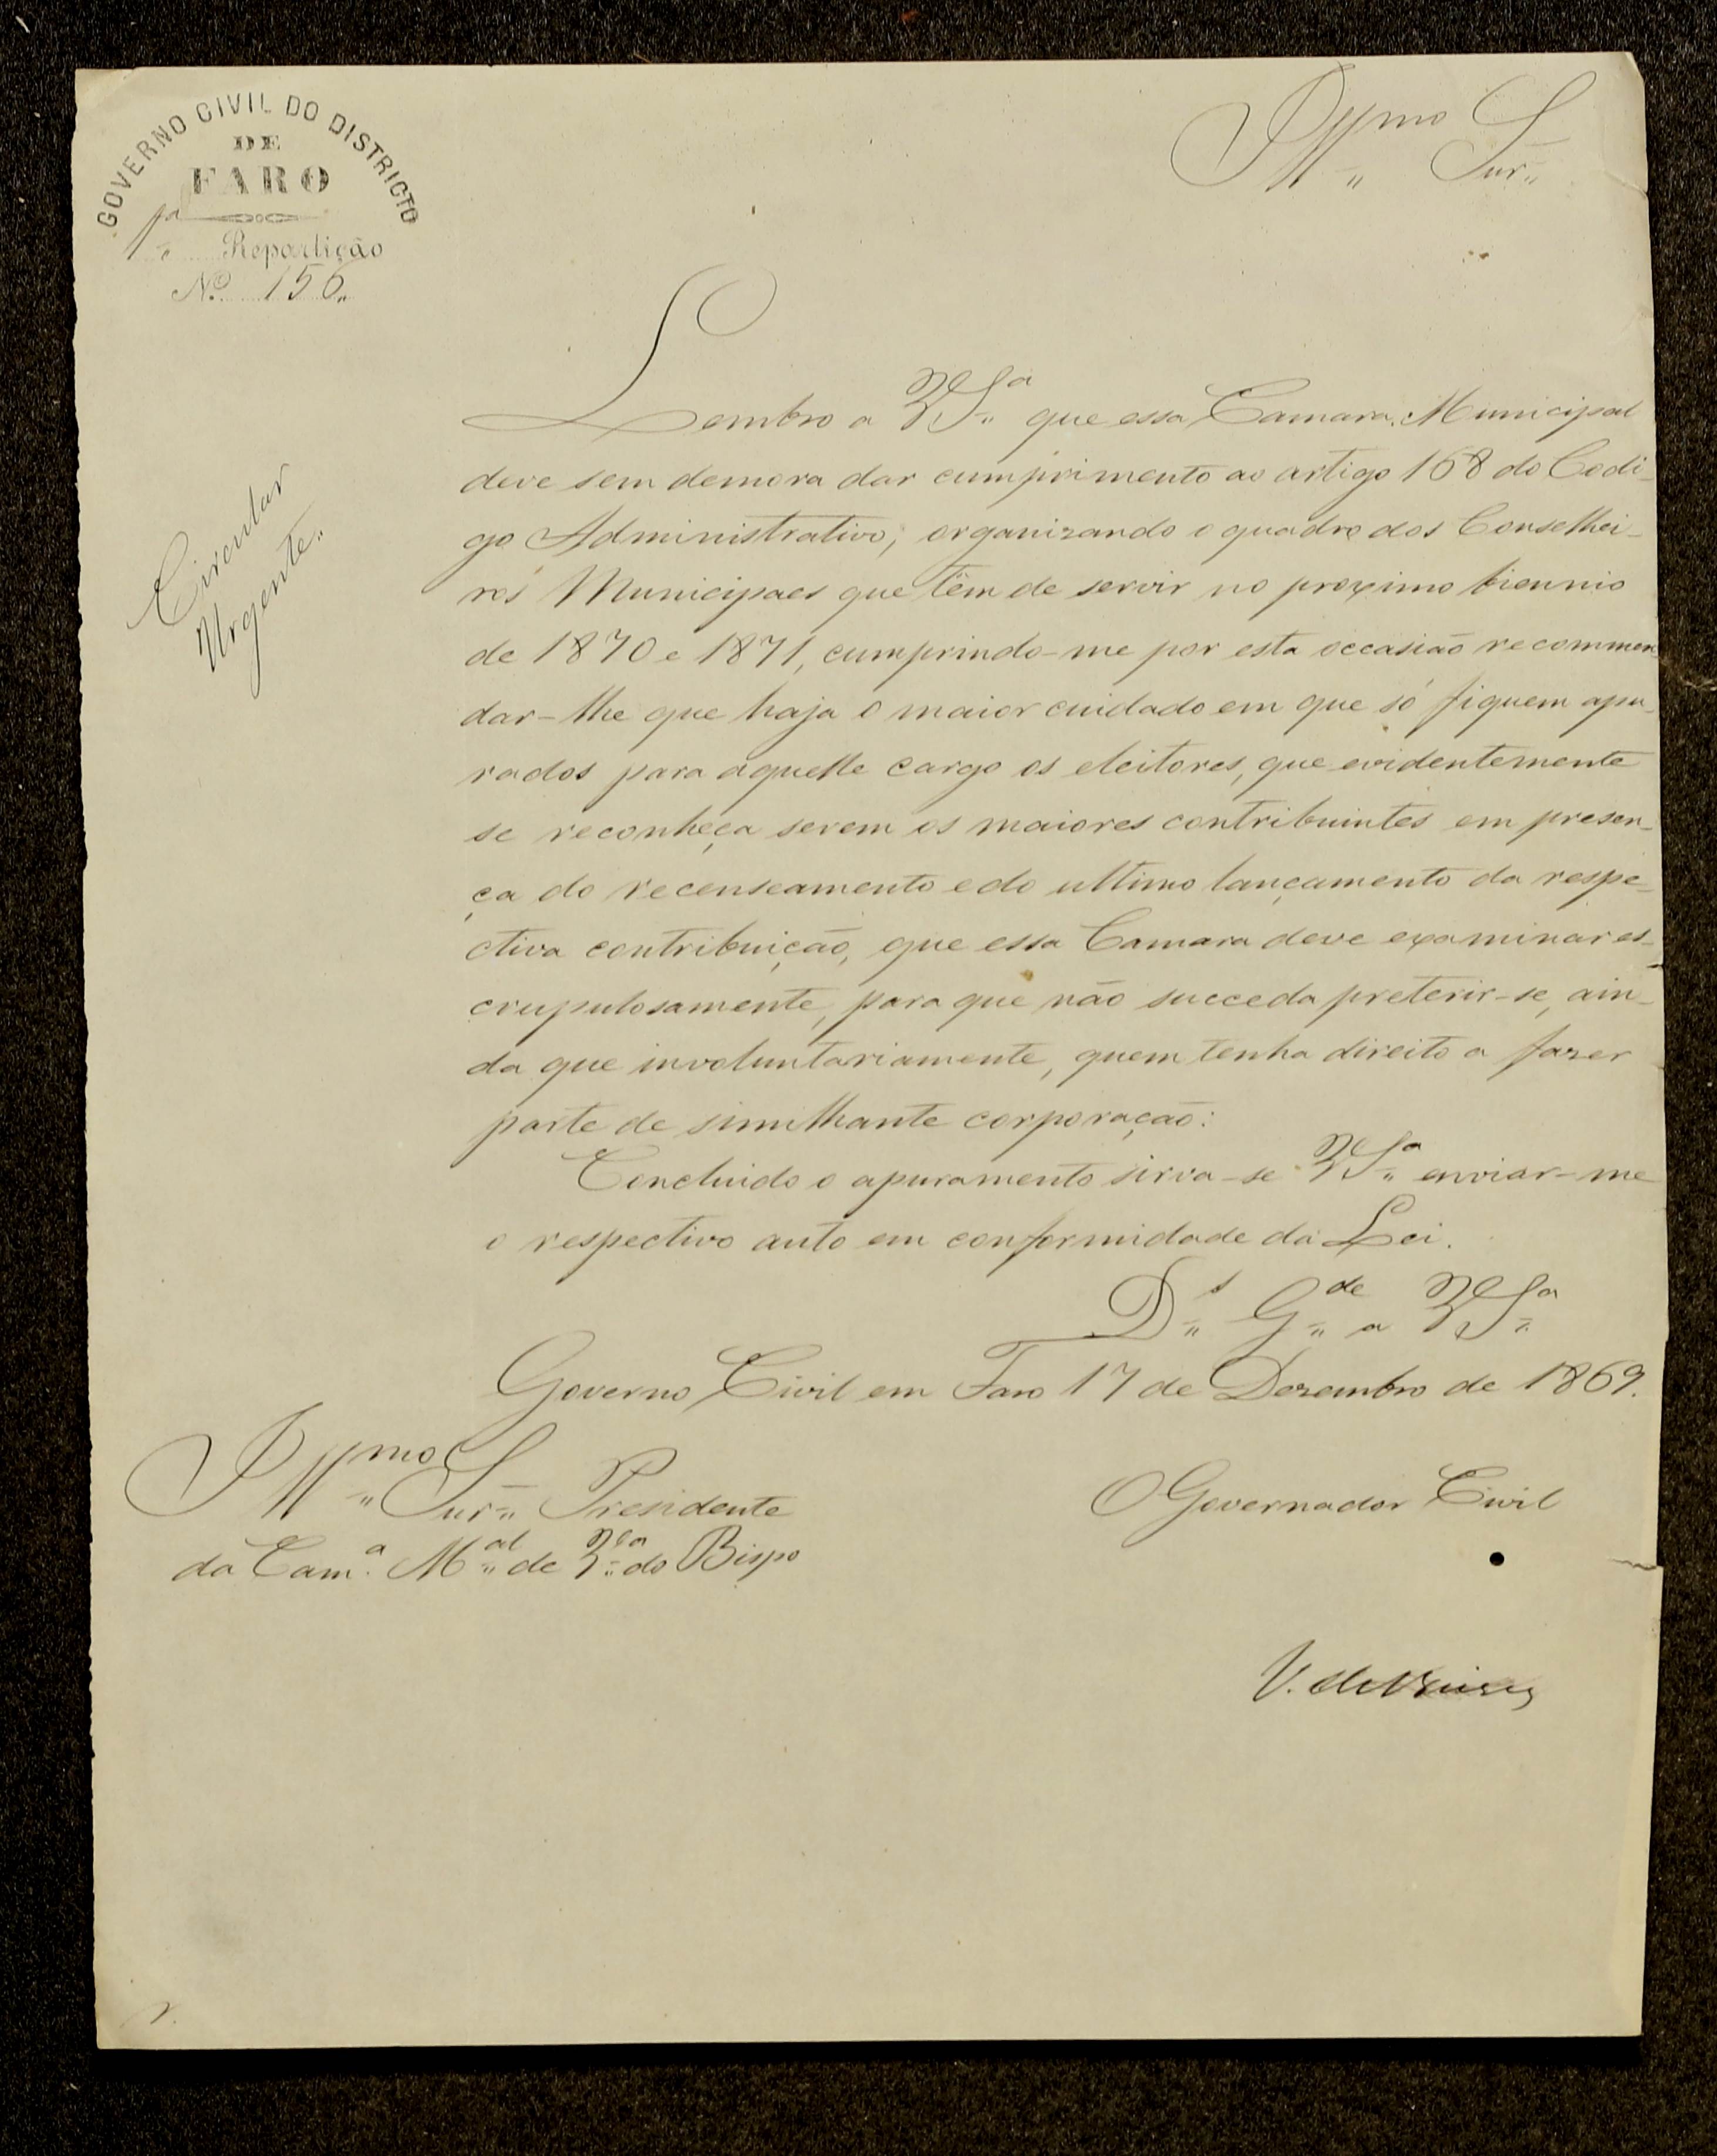 GOVERNO CIVIL DO DISTRICTO
DE
FARO
1ª Repartição
Nº 156
Illmo Snr
Circular
Urgente
Lembro a V Sª que essa Camara Municipal
deve sem demora dar cumprimento ao artigo 168 do Codi-
go Administrativo, organizando o quadro dos Conselhei-
ros Municipaes que têm de servir no proximo biennio
de 1870 e 1871, cumprindo-me por esta occasião recommen-
dar-lhe que haja o maior cuidado em que só fiquem apu-
rados para aquelle cargo os eleitores, que evidentemente
se reconheça serem os maiores contribuintes em presen-
ça do recenseamento e do ultimo lançamento da respe-
ctiva contribuição, que essa Camara deve examinar es-
crupulosamente, para que não succeda preterir-se, ain-
da que involuntariamente, quem tenha direito a fazer
parte de similhante corporação:
Concluido o apuramento sirva-se V Sª enviar-me
o respectivo auto em conformidade da Lei.
Ds Gde a V Sª
Governo Civil em Faro 17 de Dezembro de 1869.
Illmo Snr Presidente
da Camª Mal de Vla do Bispo
O Governador Civil
V. de